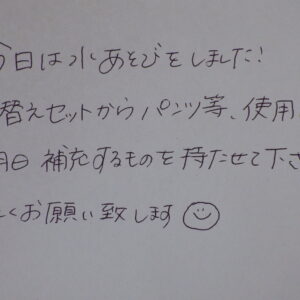 今日は水あそびをしました!
替えセットからパンツ等、使用
明日 補充するものを持たせて下さ
くお願い致します